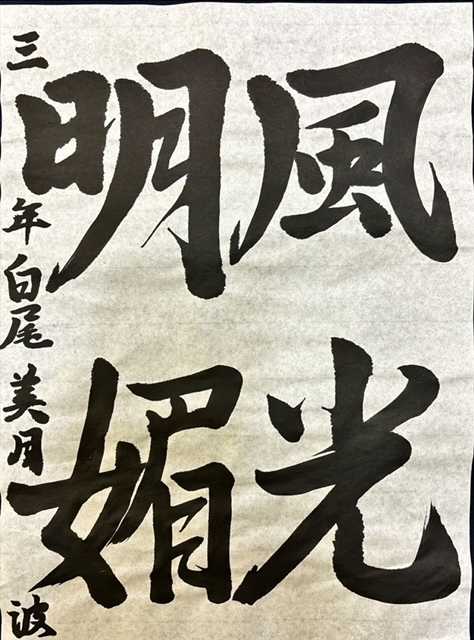 風光
明媚
三年白尾美月波